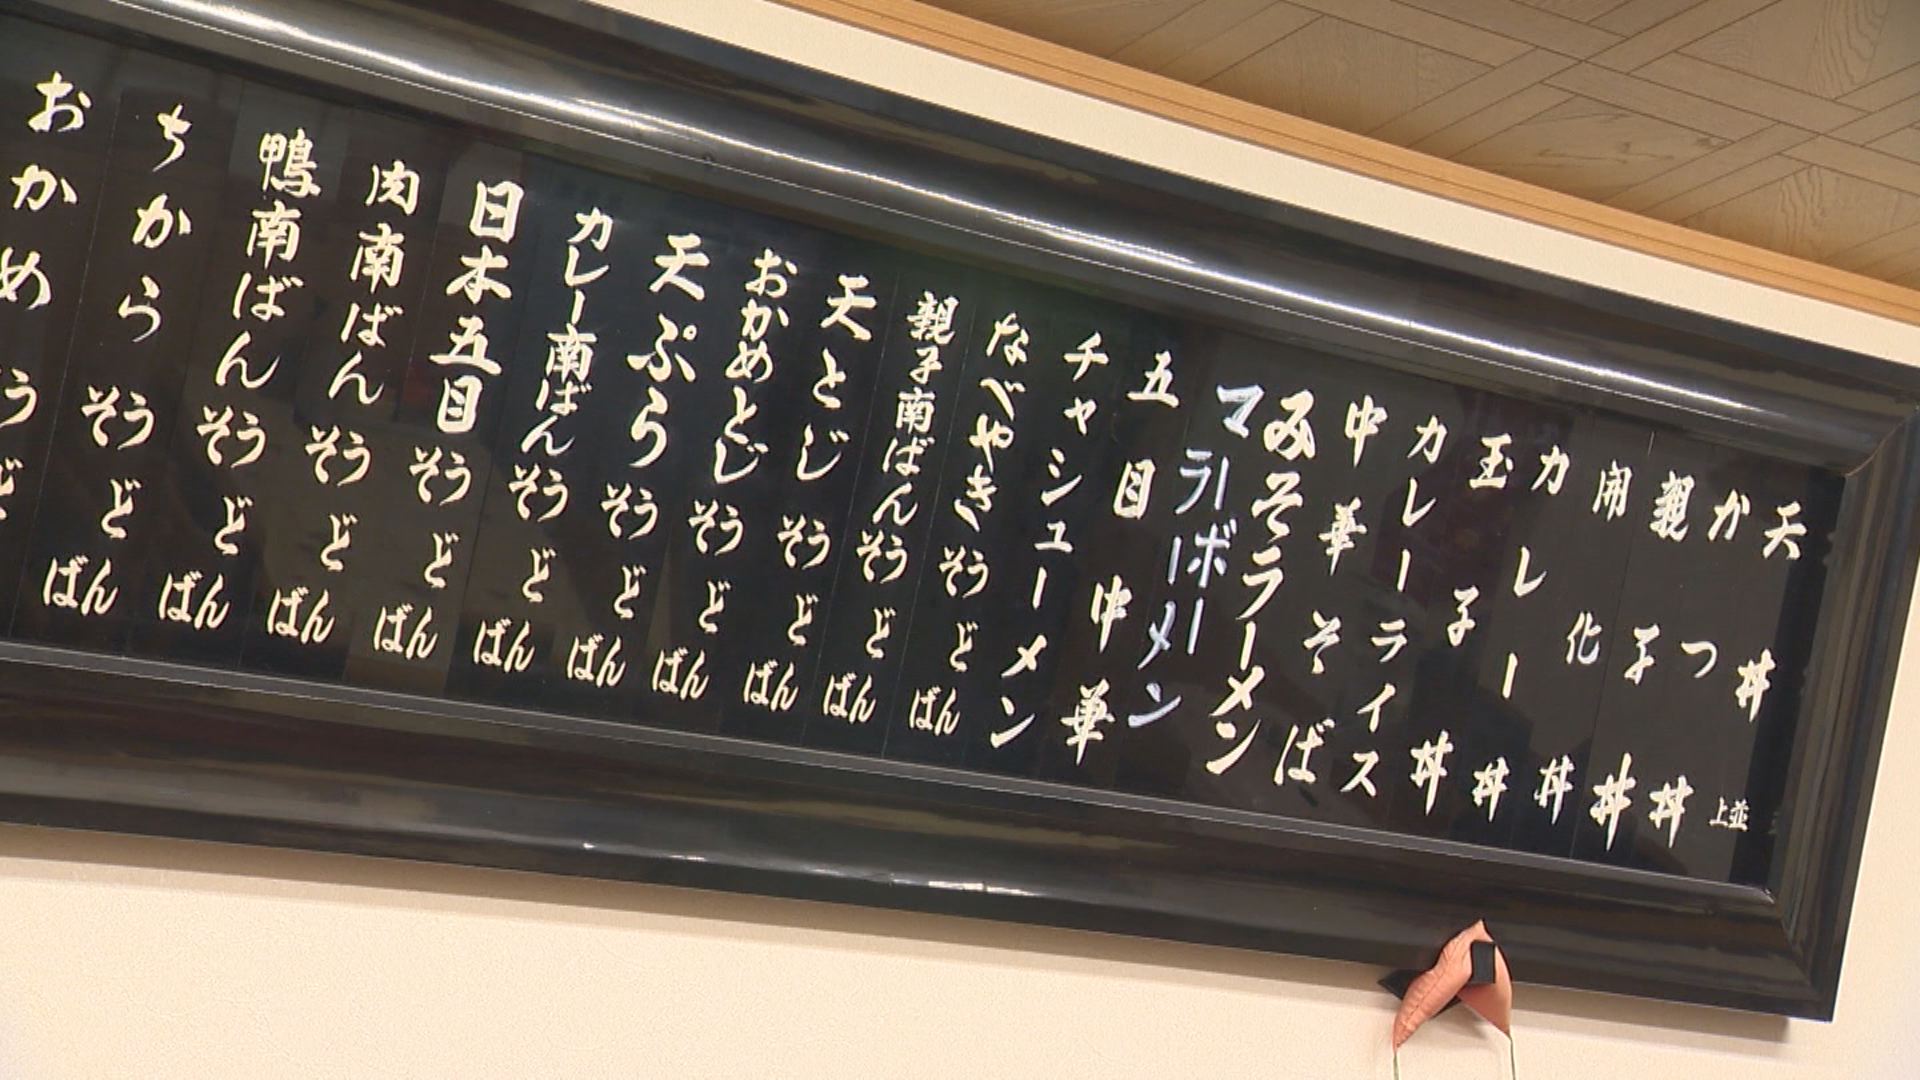 天丼 上並
かつ丼
親子丼
開化丼
カレー丼
玉子丼
カレーライス
中華そば
みそラーメン
マーボーラーメン
五目中華
チャシューメン
なべやき そう ど ばん
親子南ばん そう ど ばん
天とじ そう ど ばん
おかめとじ そう ど ばん
天ぷら そう ど ばん
カレー南ばん そう ど ばん
日本五目 そう ど ばん
肉南ばん そう ど ばん
鴨南ばん そう ど ばん
ちから そう ど ばん
おかめ うど